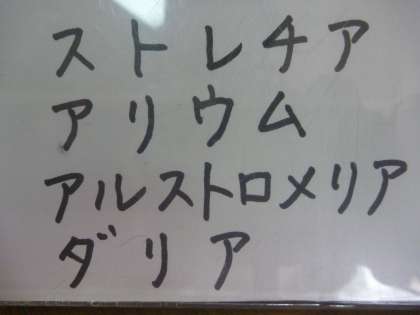 ストレチア
アリウム
アルストロメリア
ダリア